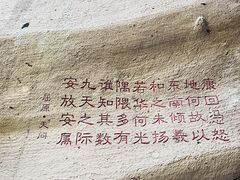 康回冯怒
地何故以
东南倾欤
和之未扬
若华何光
隅隈多有
谁知其数
九天之际
安放安属
屈原·天问